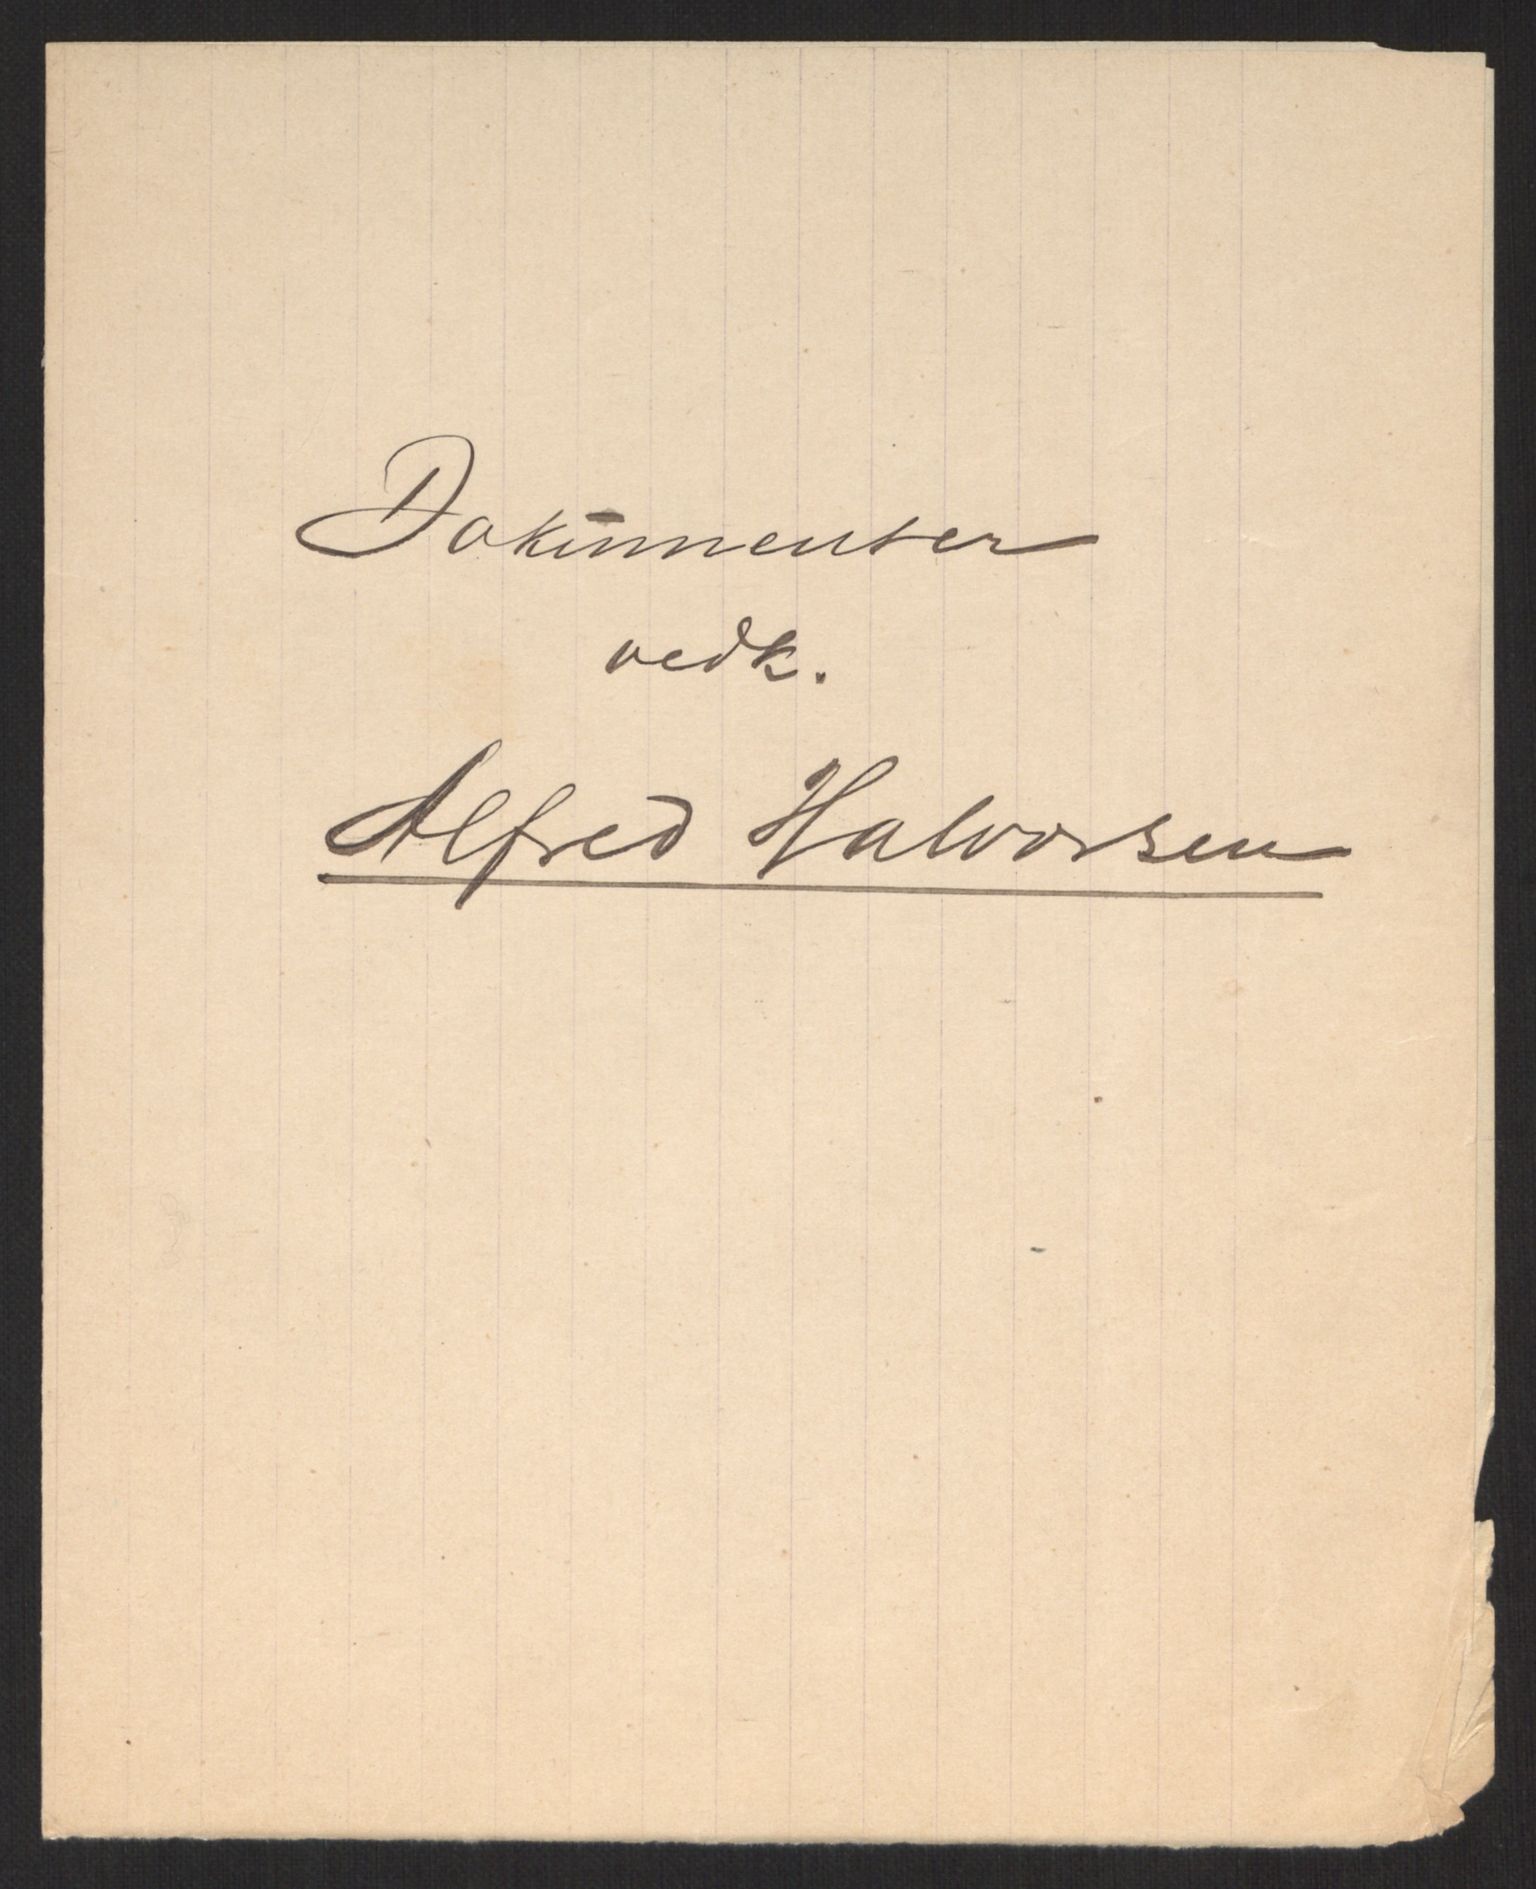 Dokumenter
vedk.
Alfred Halvorsen